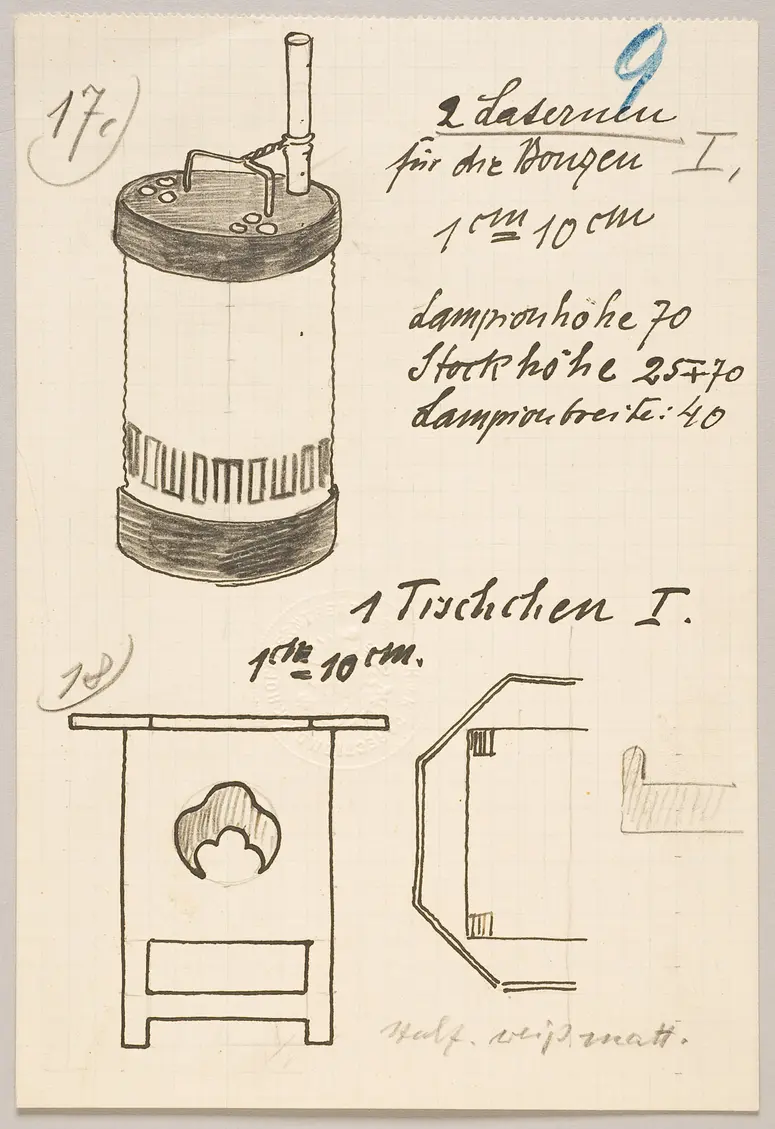 9
17.
2 Laternen
für die Bonzen I,
1 cm = 10 cm
Lampionhöhe 70
Stockhöhe 25+70
Lampionbreite: 40
1 Tischchen I.
1 cm = 10 cm.
18
weiß matt.